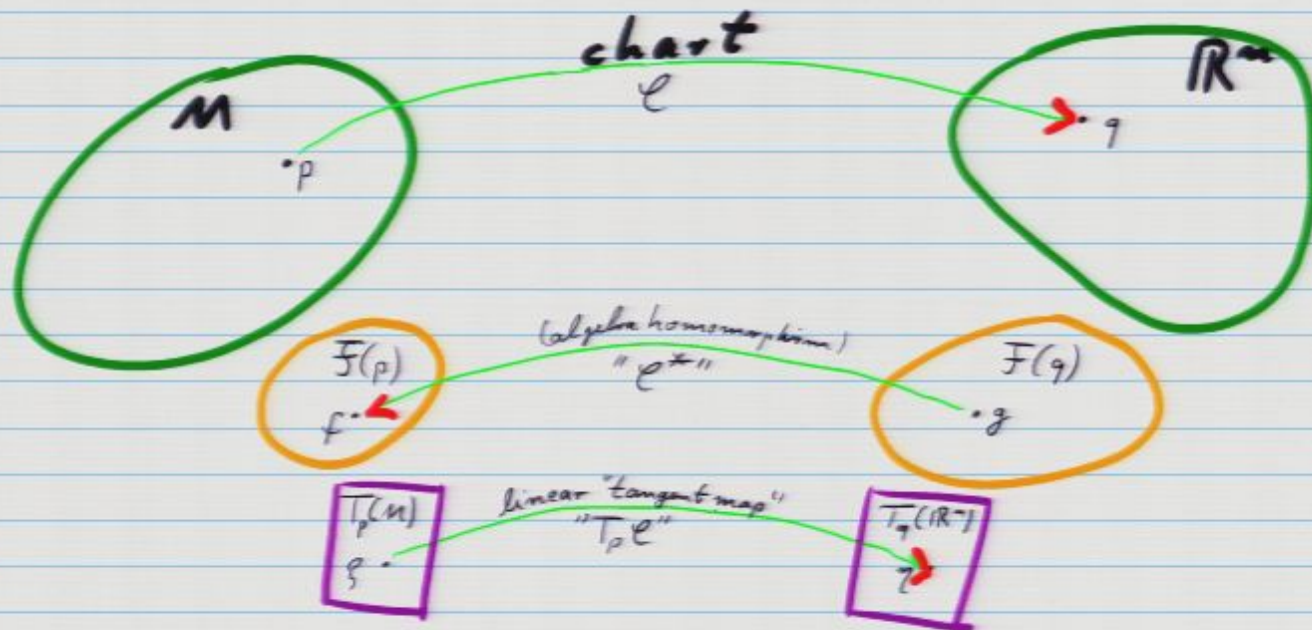 chart
φ
M
ℝⁿ
•p
• q
(algebra homomorphism)
"φ*"
F(p)
F(q)
f•
•g
linear "tangent map"
"Tₚφ"
Tₚ(M)
T_q(ℝⁿ)
ξ •
η